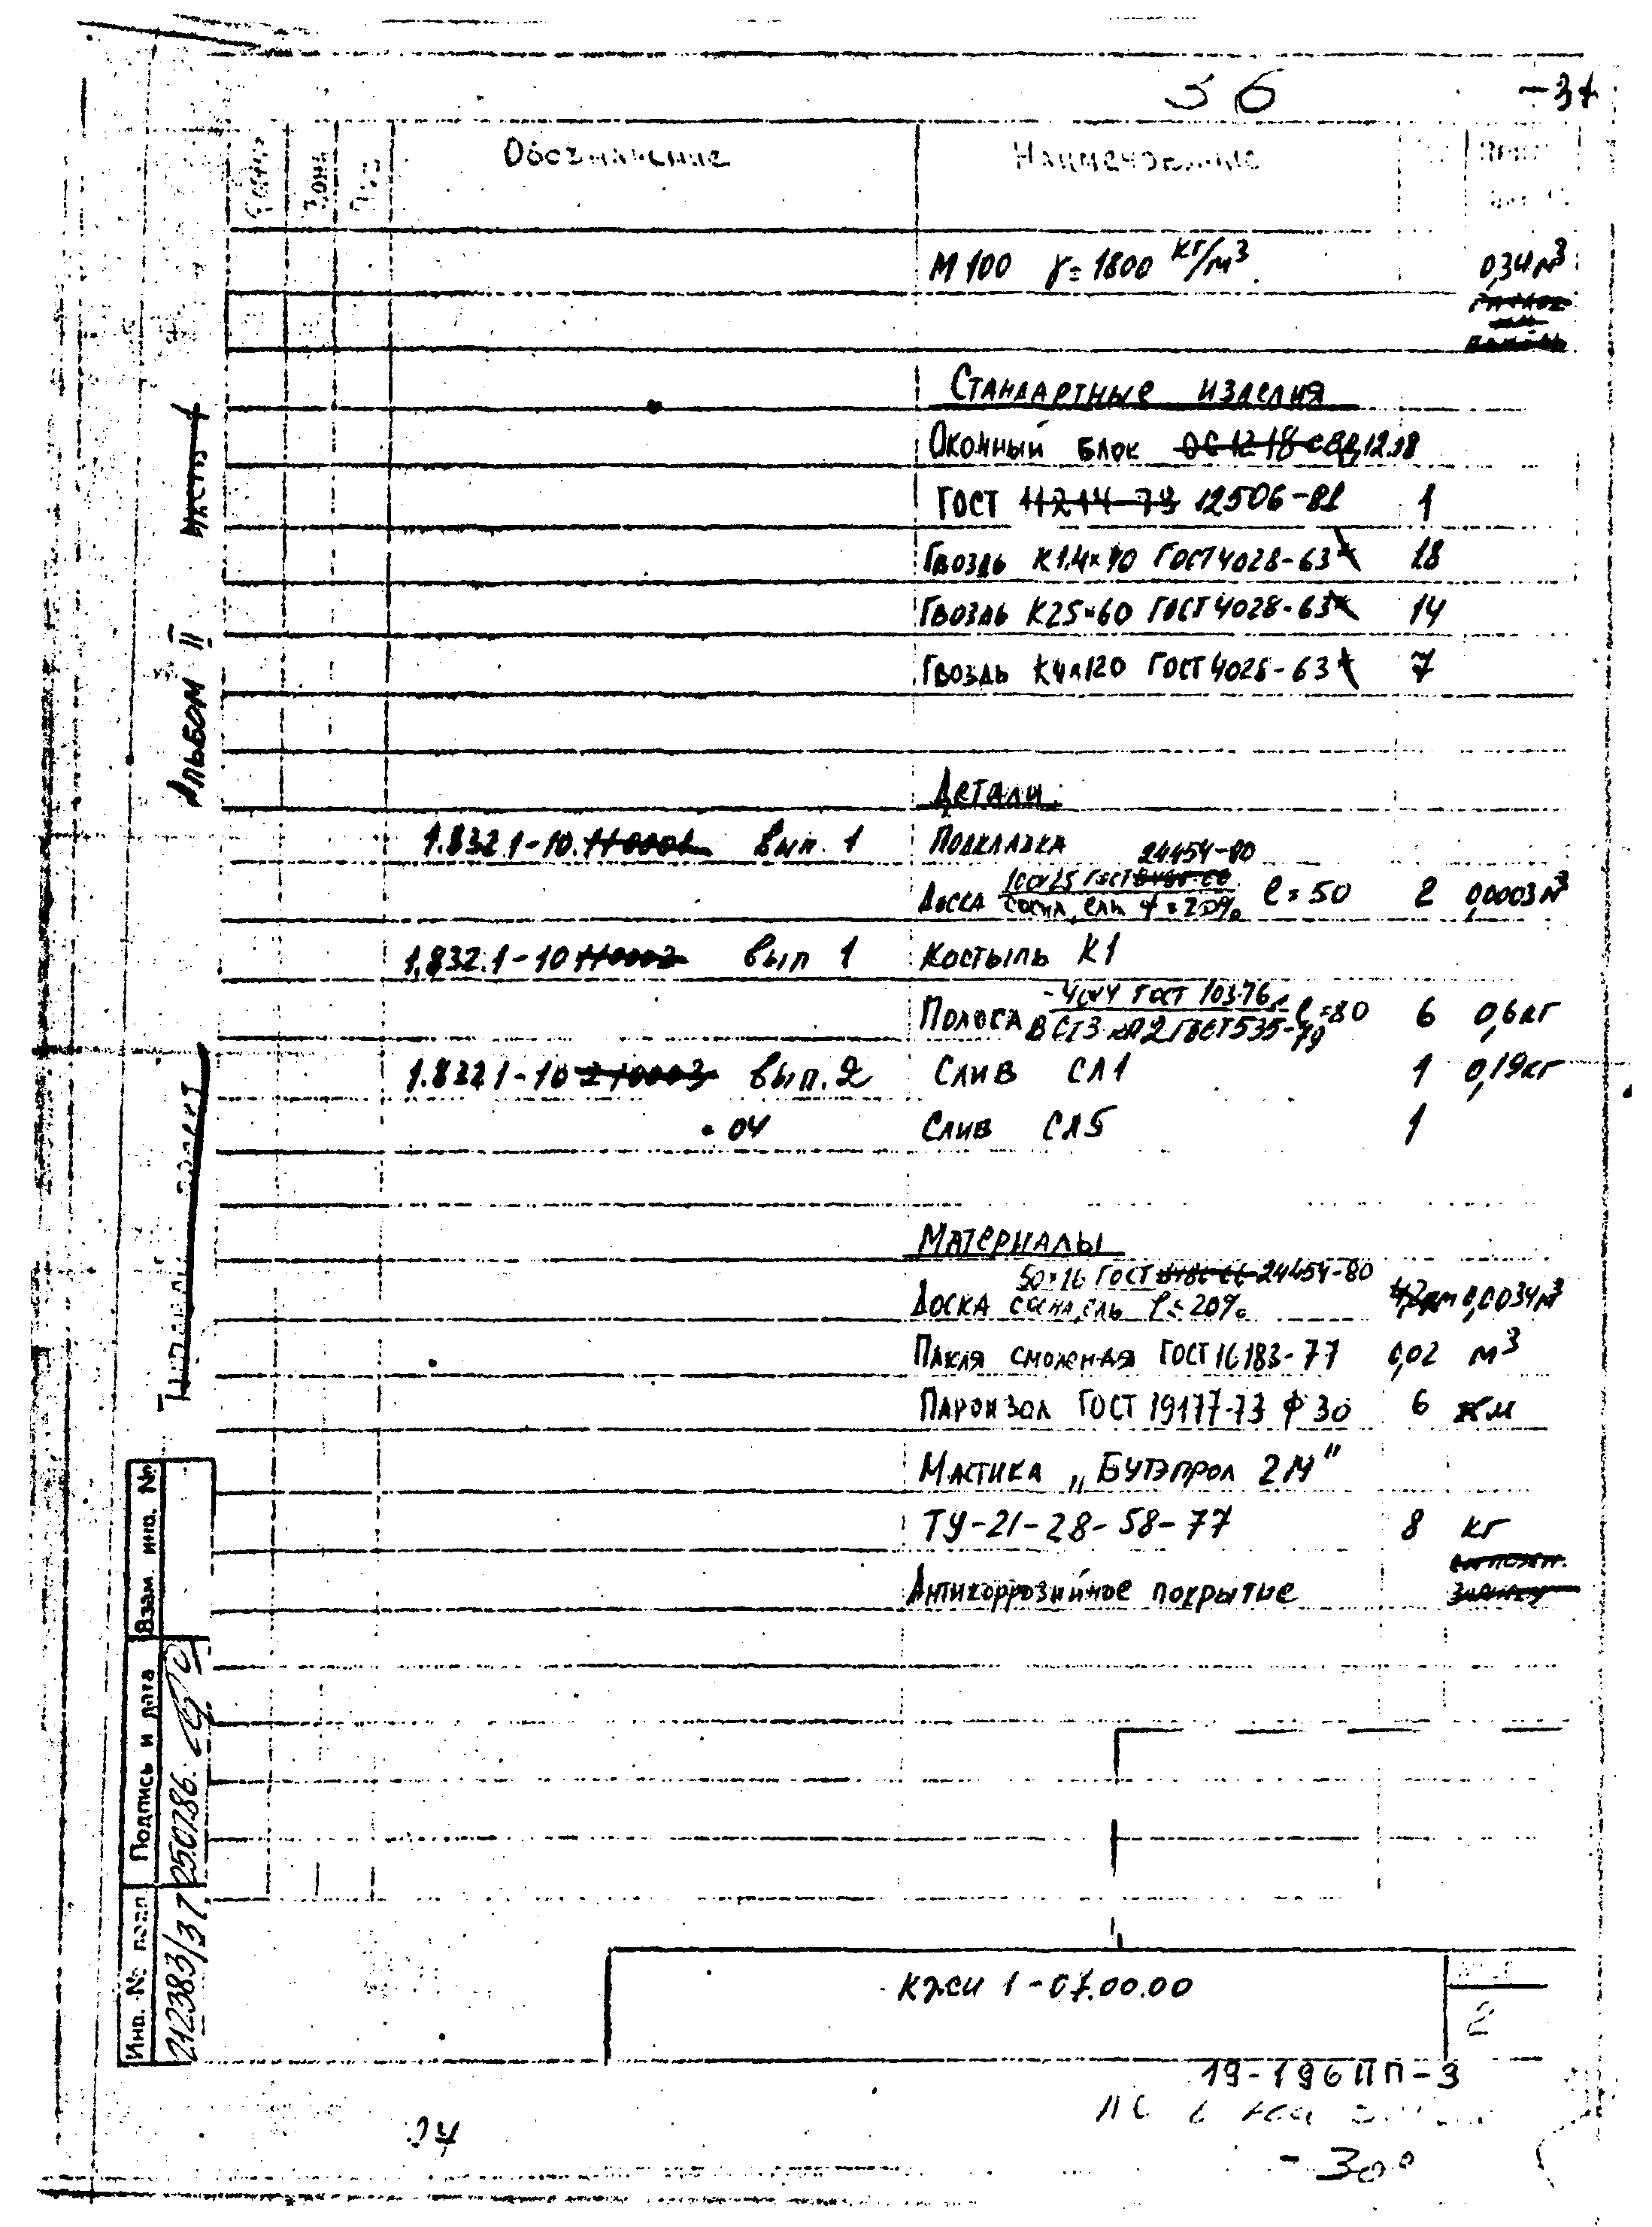 36
Обозначение
Наименование
М 100 γ = 1800 кг/м³ 0,34 м³
Стандартные изделия
Оконный блок ОС 12-18
ГОСТ 11214-78 12506-81 1
Гвоздь К1,4×40 ГОСТ 4028-63 18
Гвоздь К25×60 ГОСТ 4028-63 14
Гвоздь К4×120 ГОСТ 4028-63 7
Детали
1.832.1-10.110001 вып. 1 Подкладка
24454-80
100×25 ГОСТ
Доска сосна, ель φ=20% ℓ=50 2 0,00003 м³
1.832.1-10 110002 вып 1 Костыль К1
-40×4 ГОСТ 103-76
Полоса ВСт3кп2 ГОСТ 535-79 ℓ=80 6 0,6 кг
1.832.1-10 210003 вып. 2 Слив СЛ1 1 0,19 кг
-04 Слив СЛ5 1
Материалы
50×16 ГОСТ 24454-80
Доска сосна, ель φ=20% 0,0034 м³
Пакля смоленая ГОСТ 16183-77 0,02 м³
Пароизол ГОСТ 19177-73 Ф 30 6 м
Мастика „Бутэпрол 2М"
ТУ-21-28-58-77 8 кг
Антикоррозийное покрытие
Альбом II
Взам. инв. №
Подпись и дата
250786
Инв. № подл
212383/37
КЖСИ 1-07.00.00
2
19-196ПП-3